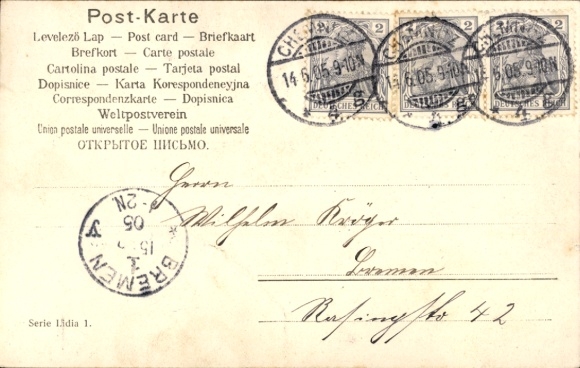 Post-Karte
Levelező Lap — Post card — Briefkaart
Brefkort — Carte postale
Cartolina postale — Tarjeta postal
Dopisnice — Karta Korespondeneyjna
Correspondenzkarte — Dopisnica
Weltpostverein
Union postale universelle — Unione postale universale
ОТКРЫТОЕ ПИСЬМО.
2 2 2
CHEMNITZ CHEMNITZ CHEMNITZ
14.6.05.9-10N 14.6.05.9-10N 14.6.05.9-10N
* 4. g * 4. g * 4. g
DEUTSCHES REICH DEUTSCHES REICH DEUTSCHES REICH
Herrn
Wilhelm Kröger
Bremen
42
BREMEN
15
05
-2N
Serie Lidia 1.